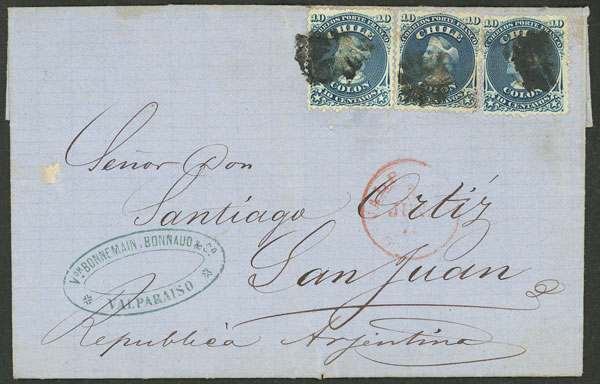 10 CORREOS PORTE FRANCO 10
CHILE
COLON
10 CENTAVOS
10 CORREOS PORTE FRANCO 10
CHILE
COLON
10 CENTAVOS
10 CORREOS PORTE FRANCO 10
CHI
COLON
10 CENTAVOS
Señor Don
Santiago Ortiz
San Juan
Republica Argentina
Vor BONNEMAIN, BONNAUD & Co
VALPARAISO